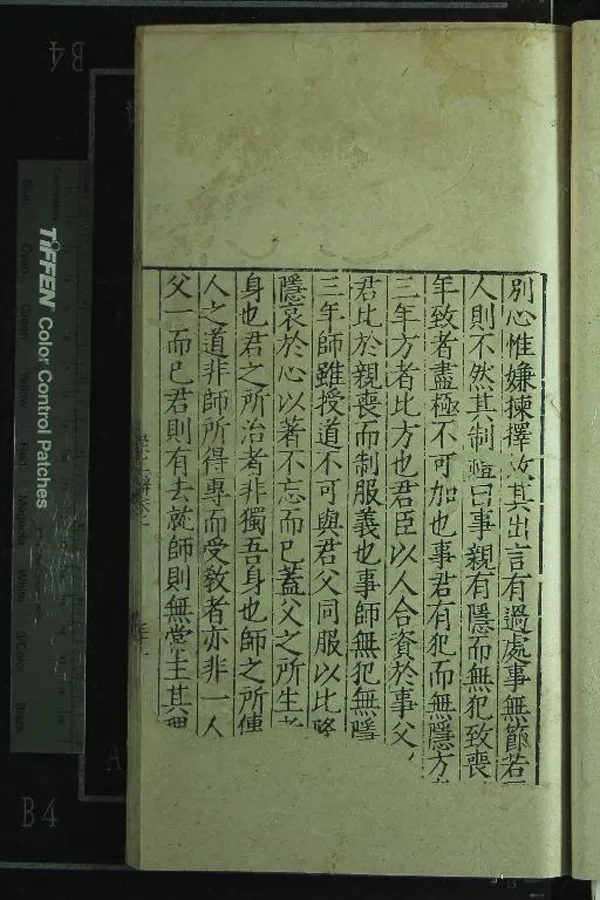 別心惟嫌揀擇故其出言有過處事無節若
人則不然其制 曰事親有隱而無犯致喪
年致者盡極不可加也事君有犯而無隱方
三年方者比方也君臣以人合資於事父
君比於親喪而制服義也事師無犯無隱
三年師雖授道不可與君父同服以比
隱哀於心以著不忘而已蓋父之所生者
身也君之所治者非獨吾身也師之所傳
人之道非師所得專而受教者亦非一人
父一而已君則有去就師則無常主其理
TIFFEN Color Control Patches
Blue
Cyan
Green
Yellow
Red
Magenta
White
3/Color
Black
B4
B4
A